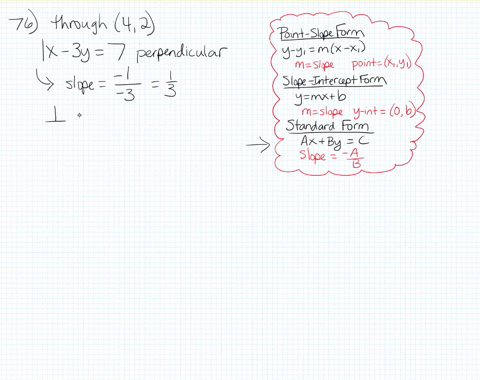 76) through (4,2)
1x - 3y = 7 perpendicular
↳ slope = -1/-3 = 1/3
⊥ :
Point-Slope Form
y-y₁ = m(x-x₁)
m=slope point=(x₁,y₁)
Slope-Intercept Form
y=mx+b
m=slope y-int=(0,b)
Standard Form
→ Ax+By = C
Slope = -A/B